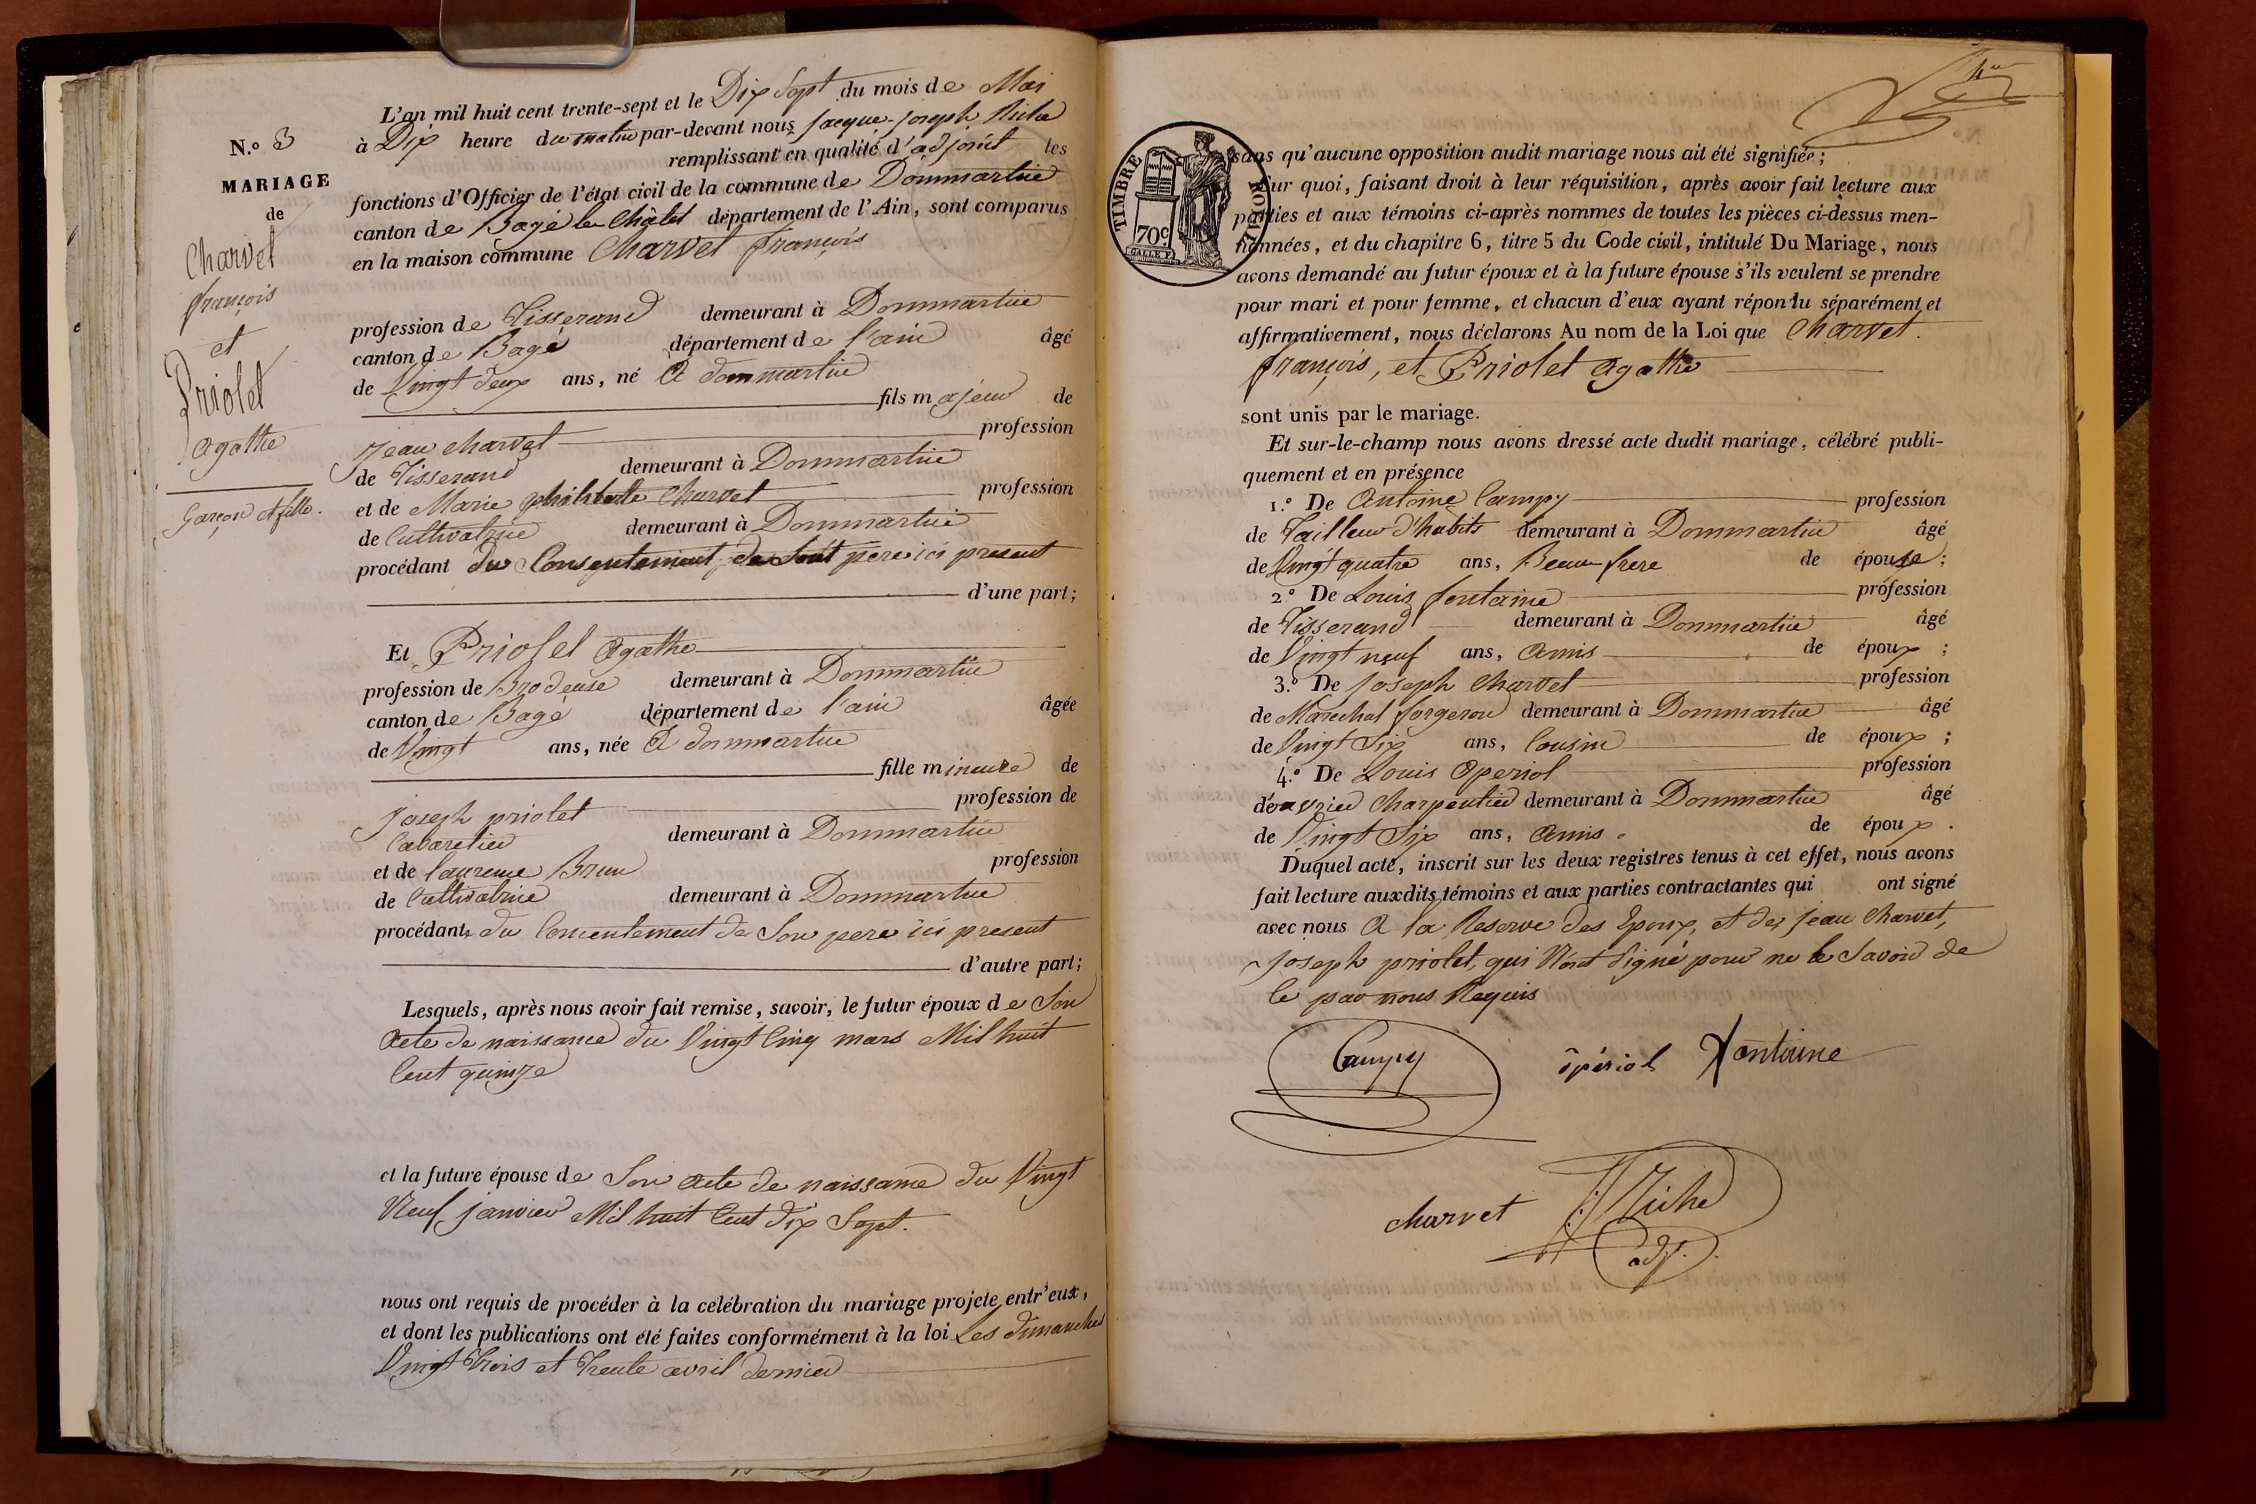 N.º 3
MARIAGE
de
Charvet
françois
et
Priolet
agathe
Garçon et fille.
L'an mil huit cent trente-sept et le Dix Sept du mois de Mai
à Dix heure du matin par-devant nous Jacque-Joseph Niche
remplissant en qualité d'adjoint les
fonctions d'Officier de l'état civil de la commune de Dommartin
canton de Bagé le Châtel département de l'Ain, sont comparus
en la maison commune Charvet françois
profession de Tisserand demeurant à Dommartin
canton de Bagé département de l'ain âgé
de Vingt deux ans, né A dommartin
fils majeur de
Jean charvet profession
de Tisserand demeurant à Dommartin
et de Marie philiberte Charvet profession
de Cultivatrice demeurant à Dommartin
procédant du Consentement de Son père ici present
d'une part;
Et Priolet Agathe
profession de Brodeuse demeurant à Dommartin
canton de Bagé département de l'ain âgée
de Vingt ans, née A dommartin
fille mineure de
Joseph priolet profession de
Cabaretier demeurant à Dommartin
et de laurence Brun profession
de Cultivatrice demeurant à Dommartin
procédant du Concentement de Son pere ici present
d'autre part;
Lesquels, après nous avoir fait remise, savoir, le futur époux de Son
Acte de naissance du Vingt Cinq mars Mil huit
Cent quinze
et la future épouse de Son acte de naissance du Vingt
Neuf janvier Mil huit Cent Dix Sept.
nous ont requis de procéder à la célébration du mariage projeté entr'eux,
et dont les publications ont été faites conformément à la loi Les dimanches
Vingt Trois et Trente avril dernier
TIMBRE ROYAL
70c
sans qu'aucune opposition audit mariage nous ait été signifiée;
ur quoi, faisant droit à leur réquisition, après avoir fait lecture aux
parties et aux témoins ci-après nommes de toutes les pièces ci-dessus men-
tionnées, et du chapitre 6, titre 5 du Code civil, intitulé Du Mariage, nous
avons demandé au futur époux et à la future épouse s'ils veulent se prendre
pour mari et pour femme, et chacun d'eux ayant répondu séparément et
affirmativement, nous déclarons Au nom de la Loi que Charvet
françois, et Priolet agathe
sont unis par le mariage.
Et sur-le-champ nous avons dressé acte dudit mariage, célébré publi-
quement et en présence
1.º De Antoine Campy profession
de Tailleur d'habits demeurant à Dommartin âgé
de Vingt quatre ans, Beau frere de épouse;
2.º De Louis fontaine profession
de Tisserand demeurant à Dommartin âgé
de Vingt neuf ans, Amis de époux;
3.º De Joseph Charvet profession
de Marechal forgeron demeurant à Dommartin âgé
de Vingt Six ans, Cousin de époux;
4.º De Louis Operiol profession
d'ouvrier Charpentier demeurant à Dommartin âgé
de Vingt Six ans, Amis de époux.
Duquel acte, inscrit sur les deux registres tenus à cet effet, nous avons
fait lecture auxdits témoins et aux parties contractantes qui ont signé
avec nous A la Reserve des Epoux, et des Jean Charvet,
Joseph priolet, qui N'ont signé pour ne le Savoir de
le par nous Requis
Campy opériol fontaine
charvet Niche
adj.